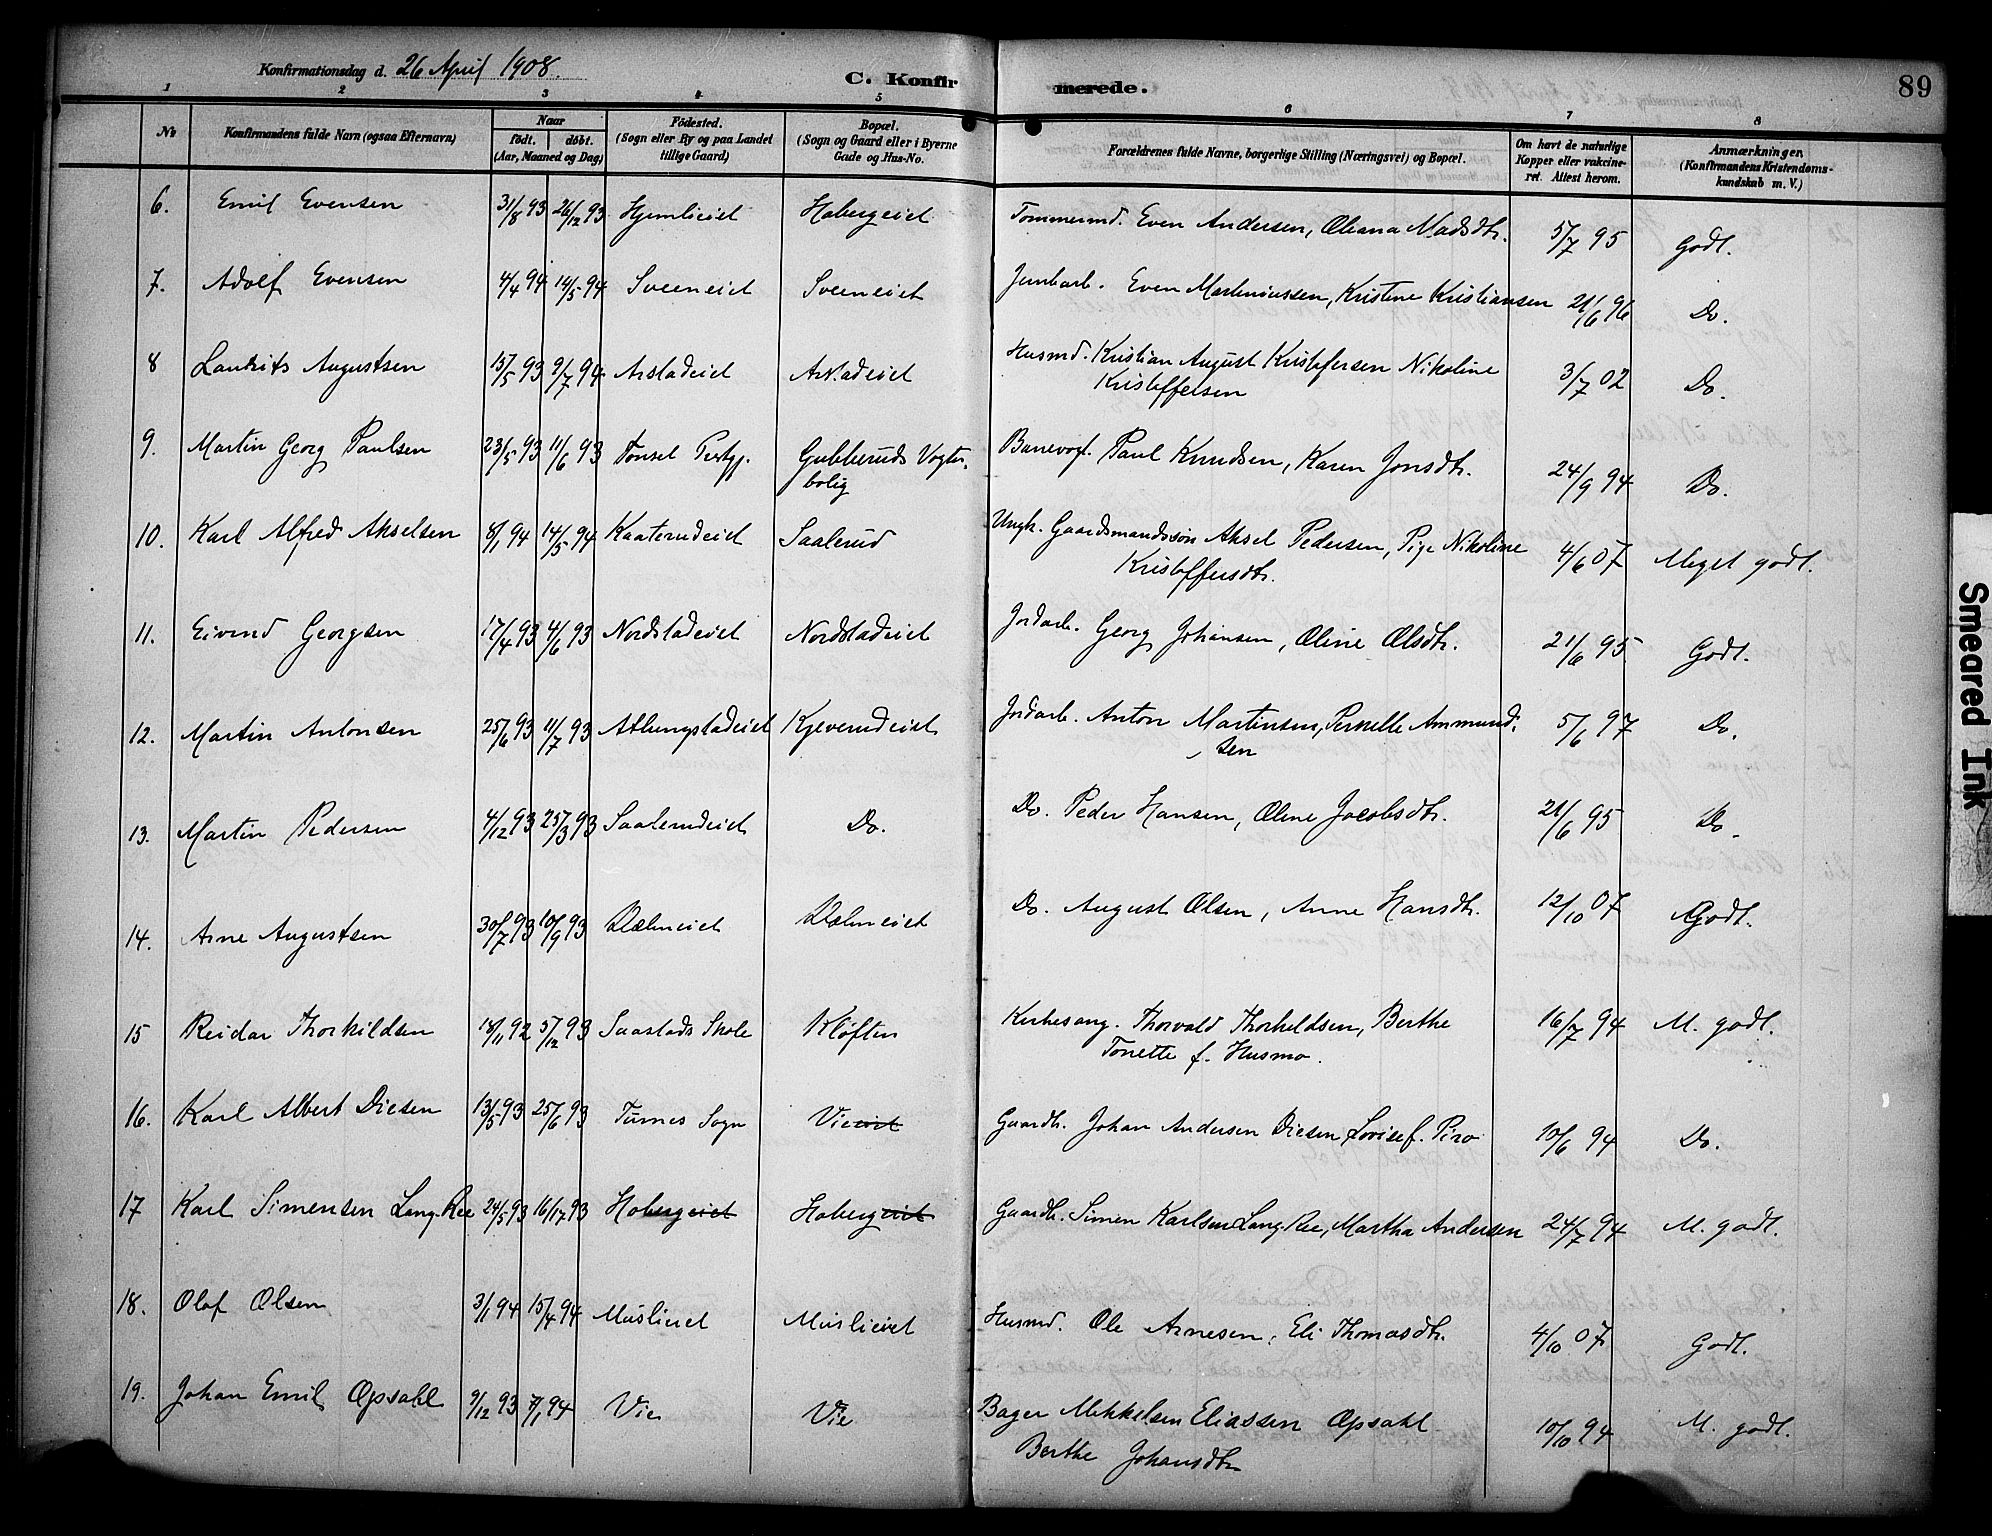 Konfirmationsdag d. 26 April 1908.
C. Konfirmerede.
89
1 2 3 4 5 6 7 8
No
Konfirmandens fulde Navn (ogsaa Efternavn)
Naar
født. døbt.
(Aar, Maaned og Dag)
Fødested.
(Sogn eller By og paa Landet
tillige Gaard)
Bopæl.
(Sogn og Gaard eller i Byerne
Gade og Hus-No.
Forældrenes fulde Navne, borgerlige Stilling (Næringsvei) og Bopæl.
Om havt de naturlige
Kopper eller vakcine-
ret. Attest herom.
Anmærkninger.
(Konfirmandens Kristendoms-
kundskab m. V.)
6. Emil Evensen 31/8 93 26/12 93 Hjemlieiet Hobergeiet Tømmermd. Even Andersen, Oleana Madsdtr. 5/7 95 Godt.
7. Adolf Evensen 4/4 94 14/5 94 Sveeneiet Sveeneiet Jernbarb. Even Martiniussen, Kristine Kristiansen 21/6 96 Do.
8 Laurits Augustsen 15/5 93 9/7 94 Arstadeiet Arstadeiet Husmd. Kristian August Kristofersen Nikoline
Kristoffersen 3/7 02 Do.
9. Martin Georg Paulsen 23/5 93 11/6 93 Tønset Prstgj. Gubberuds Vogter-
bolig Banevogt. Paul Knudsen, Karen Jonsdtr. 24/9 94 Do.
10. Karl Alfred Akselsen 8/1 94 14/5 94 Kaaterudeiet Saalerud Ungk. Gaardsmandssøn Aksel Pedersen, Pige Nikoline
Kristoffersdtr. 4/6 07 Meget godt.
11. Eivind Georgsen 17/4 93 4/6 93 Nordstadeiet Nordstadeiet Jordarb. Georg Johansen, Oline Olsdtr. 21/6 95 Godt.
12. Martin Antonsen 25/6 93 11/7 93 Atlungstadeiet Kjeverudeiet Jordarb. Anton Martinsen, Pernelle Ammund-
sen 5/6 97 Do.
13. Martin Pedersen 4/12 93 25/3 93 Saalerudeiet Do. Do. Peder Hansen, Oline Jacobsdtr. 21/6 95 Do.
14. Arne Augustsen 30/7 93 10/9 93 Ulvlneiet Do. August Olsen, Anne Hansdtr. 12/10 07 Godt.
15 Reidar Thorkildsen 18/11 92 5/12 93 Saastads Skole Kløften Kirkesang. Thorvald Thorkildsen, Berthe
Tonette f. Husmo. 16/7 94 M. godt.
16. Karl Albert Diesen 13/5 93 25/6 93 Furnes Sogn Vieeiet Gaardb. Johan Andersen Diesen, Lovise f. Piro 10/6 94 Do.
17 Karl Simensen Lang-Ree 24/5 93 16/17 93 Hobergeiet Hobergeiet Gaardb. Simen Karlsen Lang-Ree, Martha Andersen 24/7 94 M. godt.
18. Olaf Olsen 3/1 94 15/4 94 Muslieiet Muslieiet Husmd. Ole Arnesen, Eli Thomasdtr. 4/10 07 Godt.
19. Johan Emil Opsahl 9/12 93 7/1 94 Vie Vie Bager Mikkelsen Eliassen Opsahl
Berthe Johansdtr 10/10 94 M. godt.
Smeared Ink